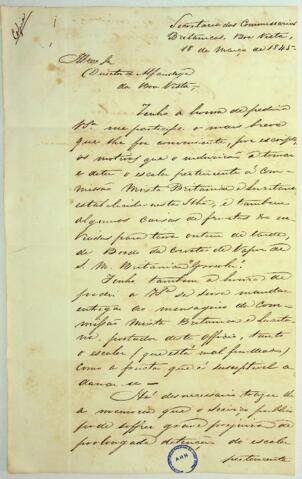 Copia
Secretaria dos Commissarios
Britanicos, Boa Vista,
18 de Março de 1845.
Illmo Sr
Director d'Alfandega
da Boa Vista.
Tenho a honra de pedir a
VSa me participe o mais breve
que lhe for conveniente, por escripto,
os motivos que o induzirão a tomar
e deter o escaler pertencente á Com-
missão Mixta Britanica e Luzitana
estabelecida nesta Ilha, e tambem
algumas caixas de fructas &a en-
viadas para terra ontem de tarde,
de Bordo da Corveta de Vapor de
S. M. Britanica
Tenho tambem a honra de
pedir a VSa se sirva mandar
entregar ao mensageiro da Com-
missão Mixta Britanica e Luzita-
na, portador deste officio, tanto
o escaler (que está mal fundeado)
como a fructa, que é susceptivel a
damnar-se —
He desnecessario trazer lhe
a memoria que o serviço publico
pode soffrer grave prejuizo da
prolongada detenção do escaler
pertencente
AHN